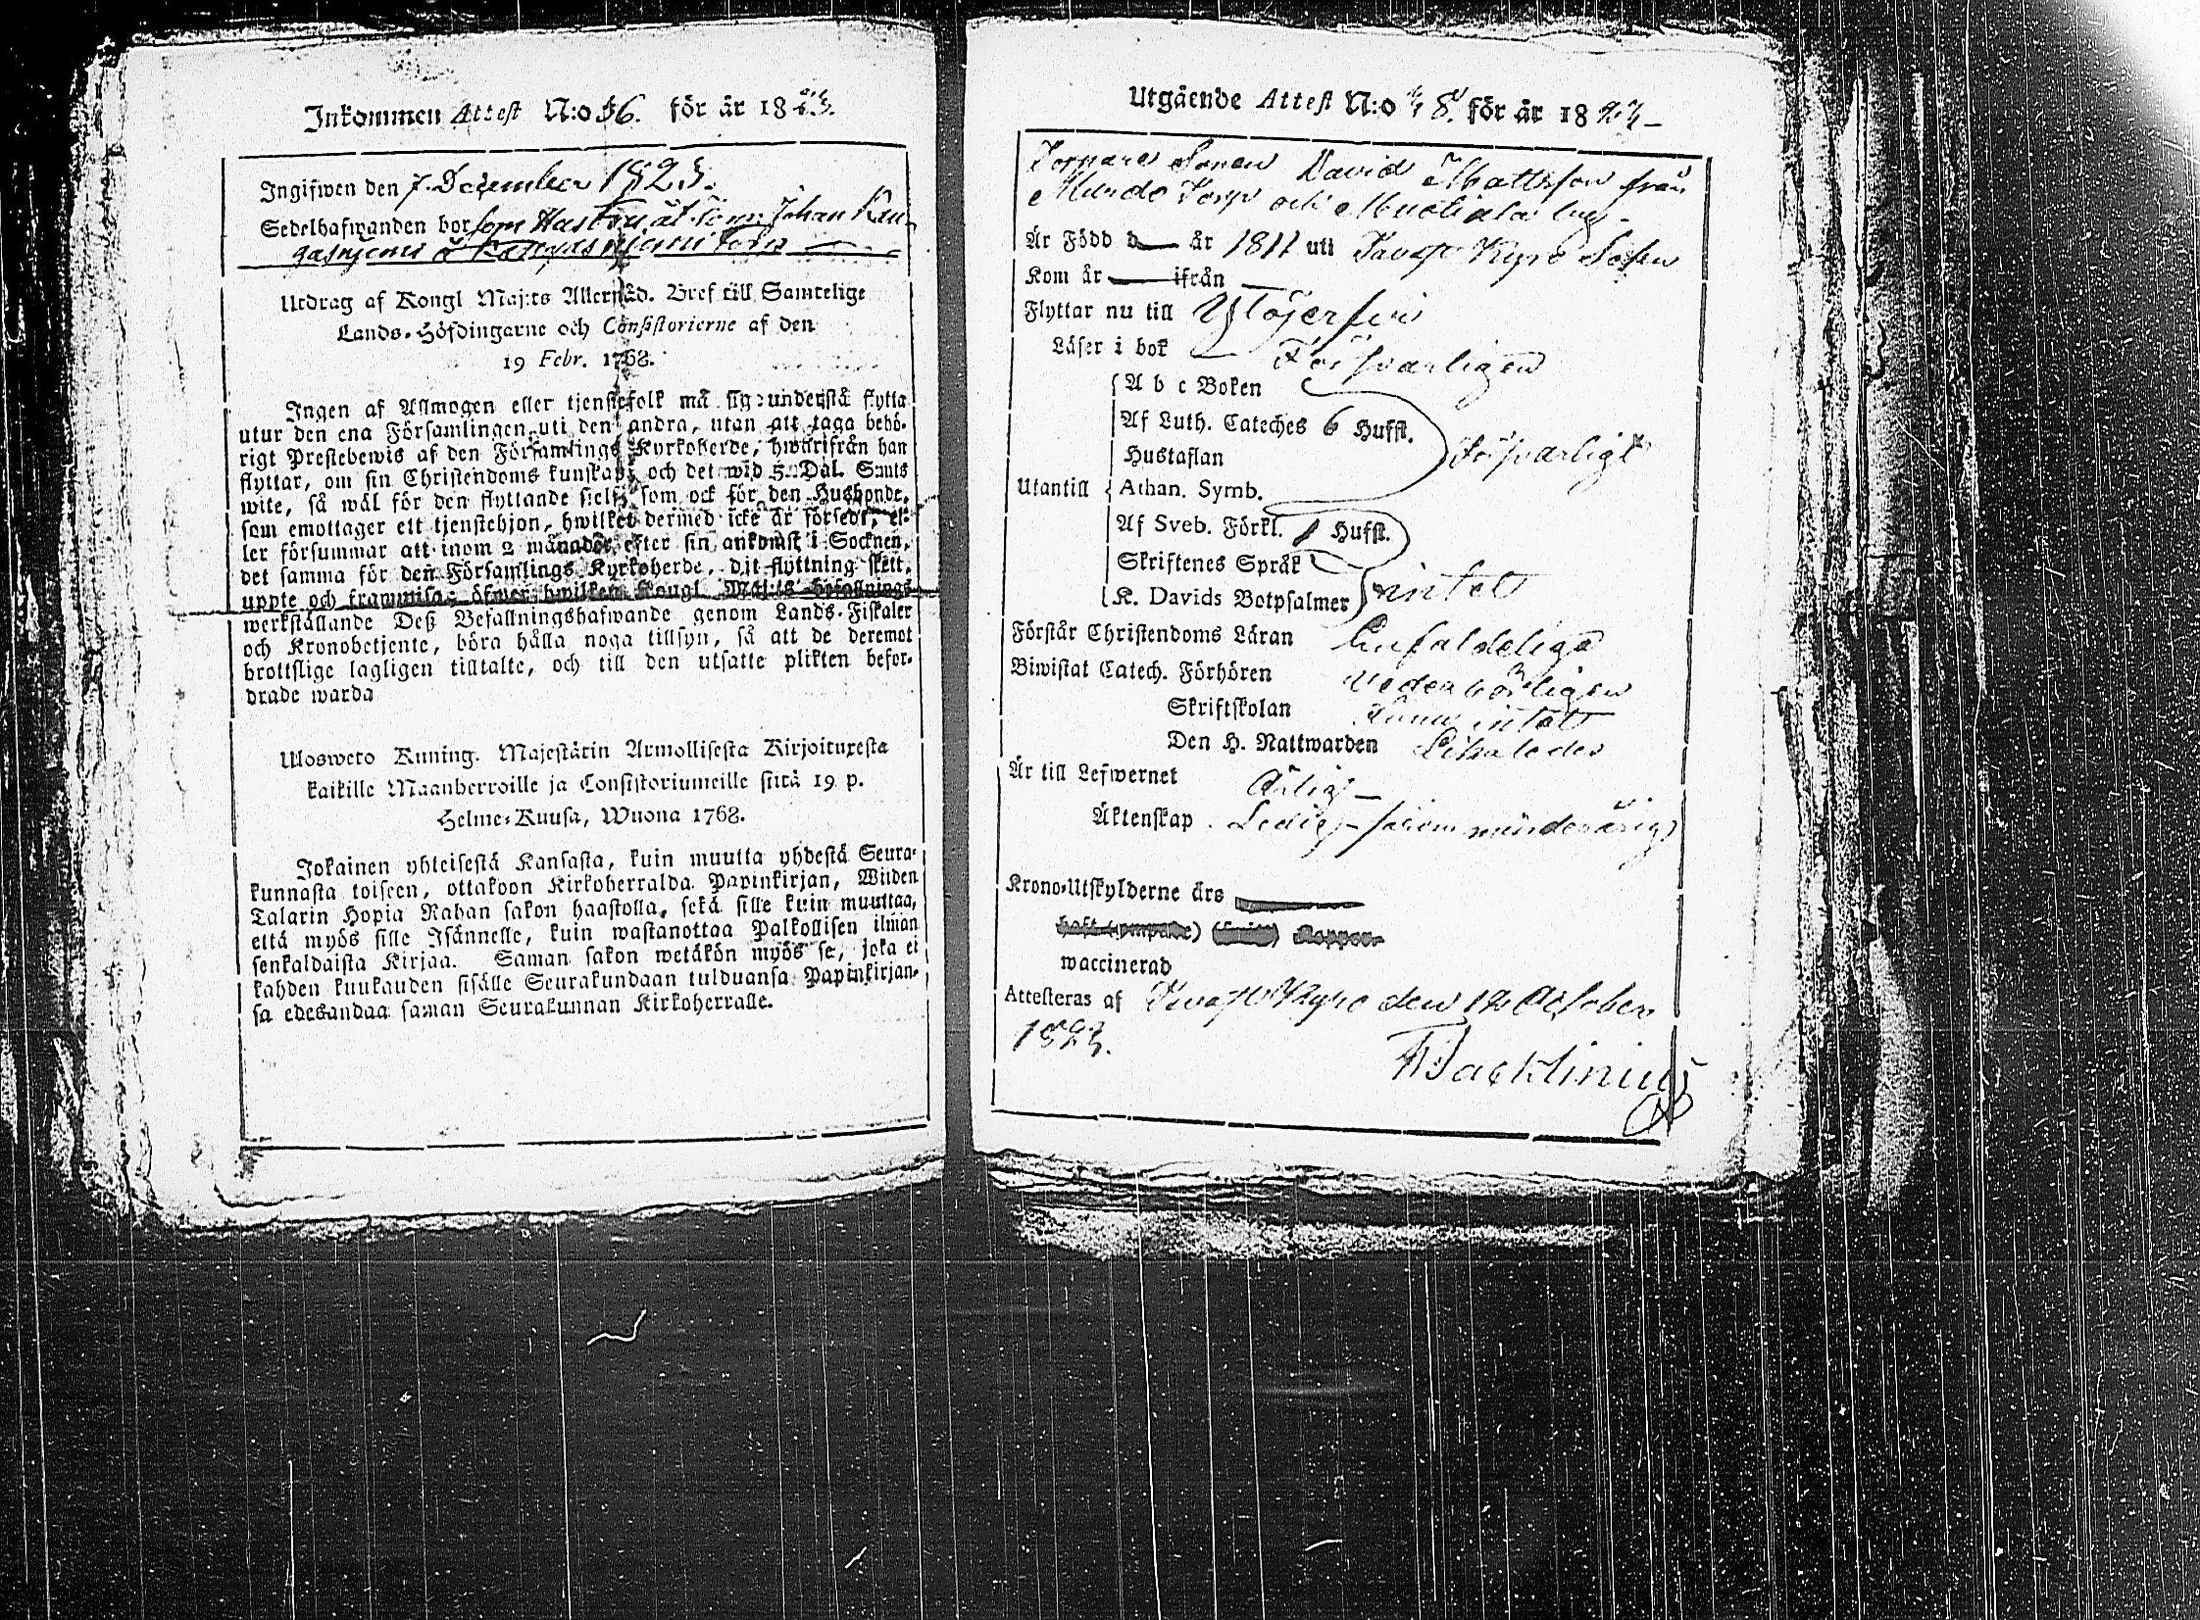 Inkommen Attest N:o 56. för år 1823.
Ingifwen den 7. December 1823.
Sedelhafwanden bor som Johan Kan-
gasniemi å
Utdrag af Kongl Maj:ts Allernåd. Bref till Samtelige
Lands-Höfdingarne och Consistorierne af den
19 Febr. 1768.
Ingen af Allmogen eller tjenstefolk må sig understå flytta
utur den ena Församlingen uti den andra, utan att taga behö-
rigt Prestebewis af den Församlings Kyrkoherde, hwarifrån han
flyttar, om sin Christendoms kunskap, och det wid 5 Dal. Smts
wite, så wäl för den flyttande sielf, som ock för den Husbonde,
som emottager ett tjenstehjon, hwilket dermed icke är försedt, el-
ler försummar att inom 2 månader efter sin ankomst i Socknen,
det samma för den Församlings Kyrkoherde, dit flyttning skett,
uppte och framwisa; öfwer hwilken Kongl Maj:ts befallnings
werkställande Deß Befallningshafwande genom Lands-Fiskaler
och Kronobetjente, böra hålla noga tillsyn, så att de deremot
brottslige lagligen tilltalte, och till den utsatte plikten befor-
drade warda
Ulosweto Kuning. Majestätin Armollisesta Kirjoituxesta
kaikille Maanherroille ja Consistoriumeille siitä 19 p.
Helme-Kuusa, Wuona 1768.
Jokainen yhteisestä Kansasta, kuin muutta yhdestä Seura-
kunnasta toiseen, ottakoon Kirkoherralda Papinkirjan, Wiiden
Talarin Hopia Rahan sakon haastolla, sekä sille kuin muuttaa,
että myös sille Isännelle, kuin wastanottaa Palkollisen ilman
senkaldaista Kirjaa. Saman sakon wetäkön myös se, joka ei
kahden kuukauden sisälle Seurakundaan tulduansa Papinkirjan-
sa edesandaa saman Seurakunnan Kirkoherralle.
Utgående Attest N:o 48. för år 1823
Torpare Sonen David Mattsson från
Torp och
Är Född d — år 1811 uti Tavast Kyro Sokn
Kom år — ifrån —
Flyttar nu till
Läser i bok Försvarligen
A b c Boken
Af Luth. Cateches 6 Hufst.
Hustaflan Försvarligt
Utantill Athan. Symb.
Af Sveb. Förkl. 1 Hufst.
Skriftenes Språk
K. Davids Botpsalmer intet
Förstår Christendoms Läran Enfaldeligt
Biwistat Catech. Förhören Vederbörligen
Skriftskolan Ännu intet
Den H. Nattwarden Likaledes
Är till Lefwernet Ärlig —
Äktenskap Ledig — såsom minderårig
Krono-Utskylderne års
waccinerad
Attesteras af Tavast Kyro den 12 October
1823.
Backlinius